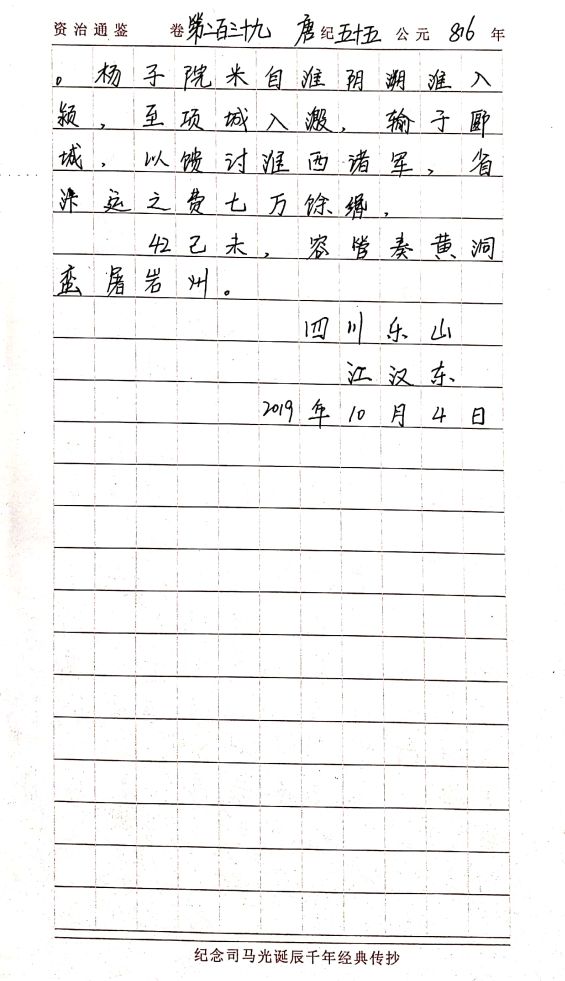 资治通鉴 卷第二百三十九 唐纪五十五 公元 816 年
。杨子院米自淮阴溯淮入
颍，至项城入溵，输于郾
城，以馈讨淮西诸军，省
汴运之费七万馀缗，
42己未，容管奏黄洞
蛮屠岩州。
四川乐山
江汉东
2019年10月4日
纪念司马光诞辰千年经典传抄